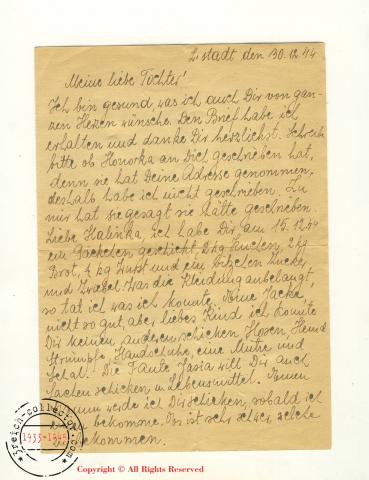 L. stadt den 30.12.44
Meine liebe Tochter!
Ich bin gesund, was ich auch Dir von gan-
zen Herzen wünsche. Den Brief habe ich
erhalten und danke Dir herzlichst. Schreib
bitte ob Honorka an Dich geschrieben hat,
denn sie hat Deine Adresse genommen,
deshalb habe ich nicht geschrieben. Zu
mir hat sie gesagt sie hätte geschrieben.
Liebe Halinka, ich habe Dir am 15.12.44
ein Päckchen geschickt, 2 kg Kuchen, 2 kg
Brot, ½ kg Wurst und ein bischen Zucker
und Zwiebel. Was die Kleidung anbelangt,
so tat ich was ich konnte. Deine Jacke
nicht so gut, aber liebes Kind ich konnte
Dir keinen anderen schicken Hosen, Hemd
Strümpfe, Handschuhe, eine Mütze und
Schal. Die Tante Jasia will Dir auch
Sachen schicken, u. Lebensmittel. Einen
werde ich Dir schicken, sobald ich
bekomme. Es ist sehr schwer, welche
bekommen.
3reich-collector.com
1933-1945
Copyright © All Rights Reserved